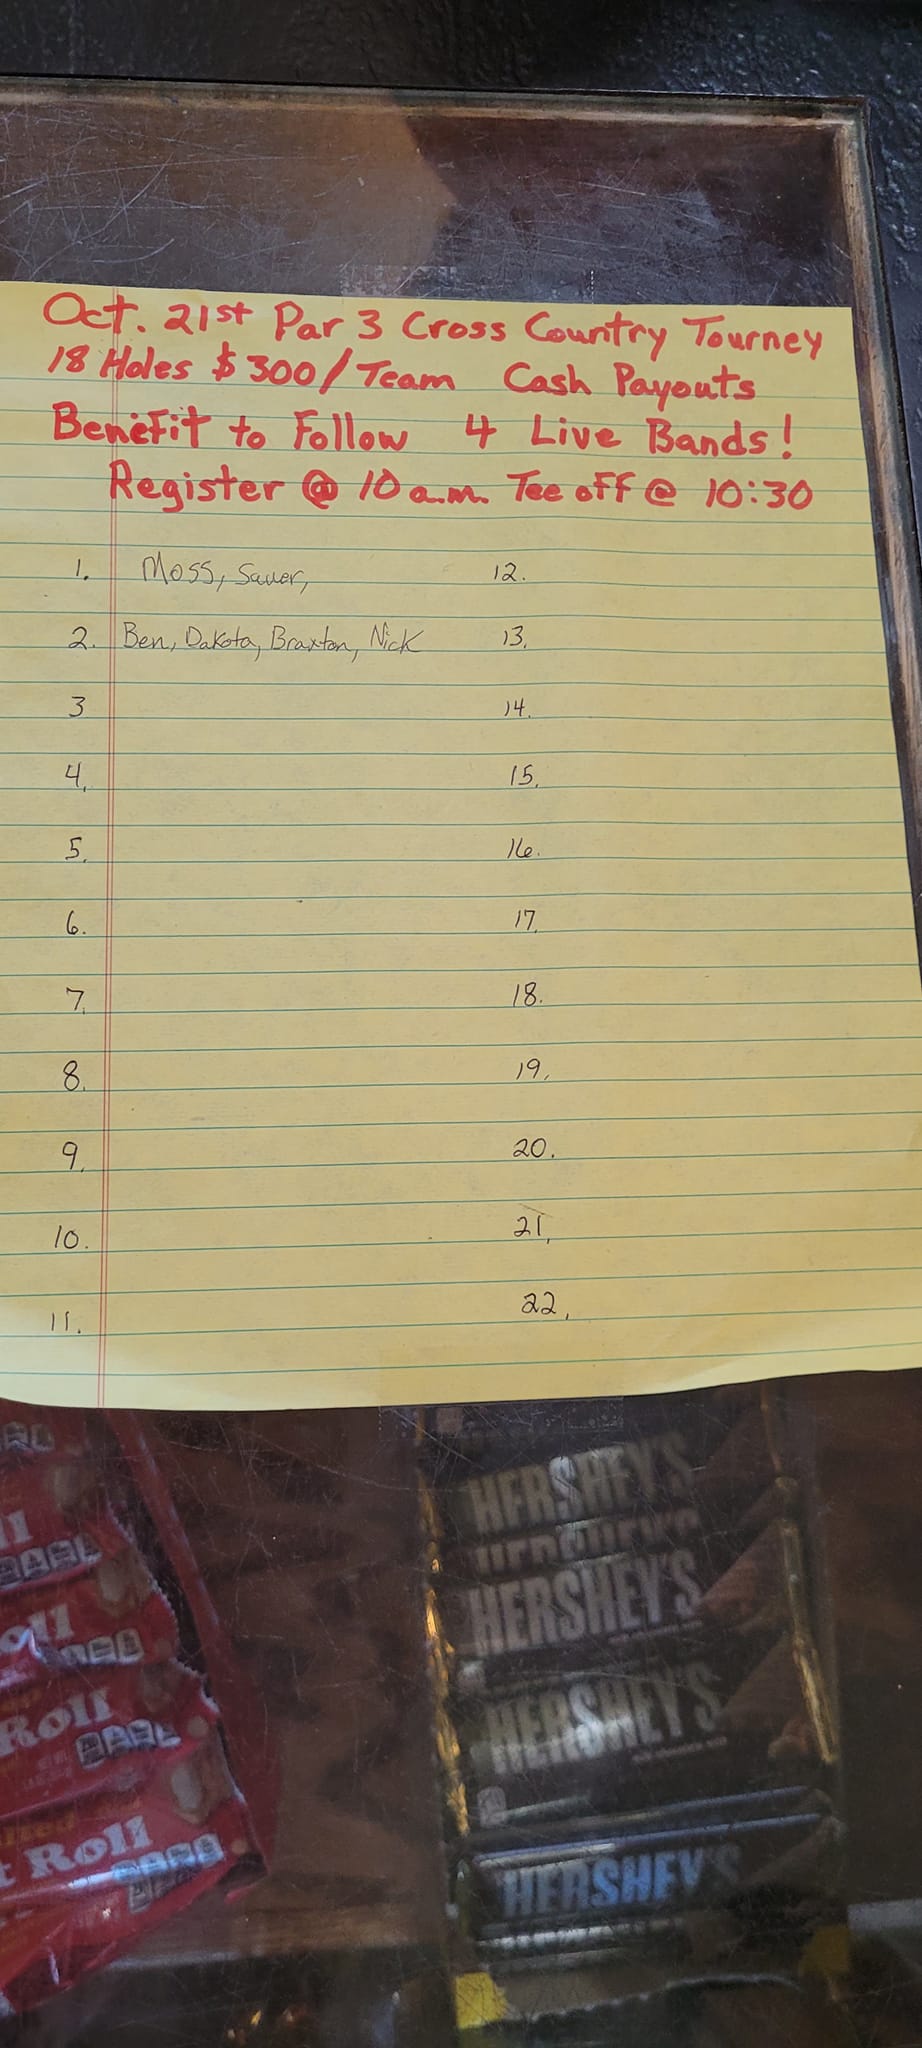 Oct. 21st Par 3 Cross Country Tourney
18 Holes $300/Team Cash Payouts
Benefit to Follow 4 Live Bands!
Register @ 10 a.m. Tee off @ 10:30
1. Moss, Sauer,
2. Ben, Dakota, Braxton, Nick
3
4.
5.
6.
7.
8.
9.
10.
11.
12.
13.
14.
15.
16.
17.
18.
19.
20.
21.
22.
Roll
t Roll
HERSHEY'S
HERSHEY'S
HERSHEY'S
HERSHEY'S
HERSHEY'S